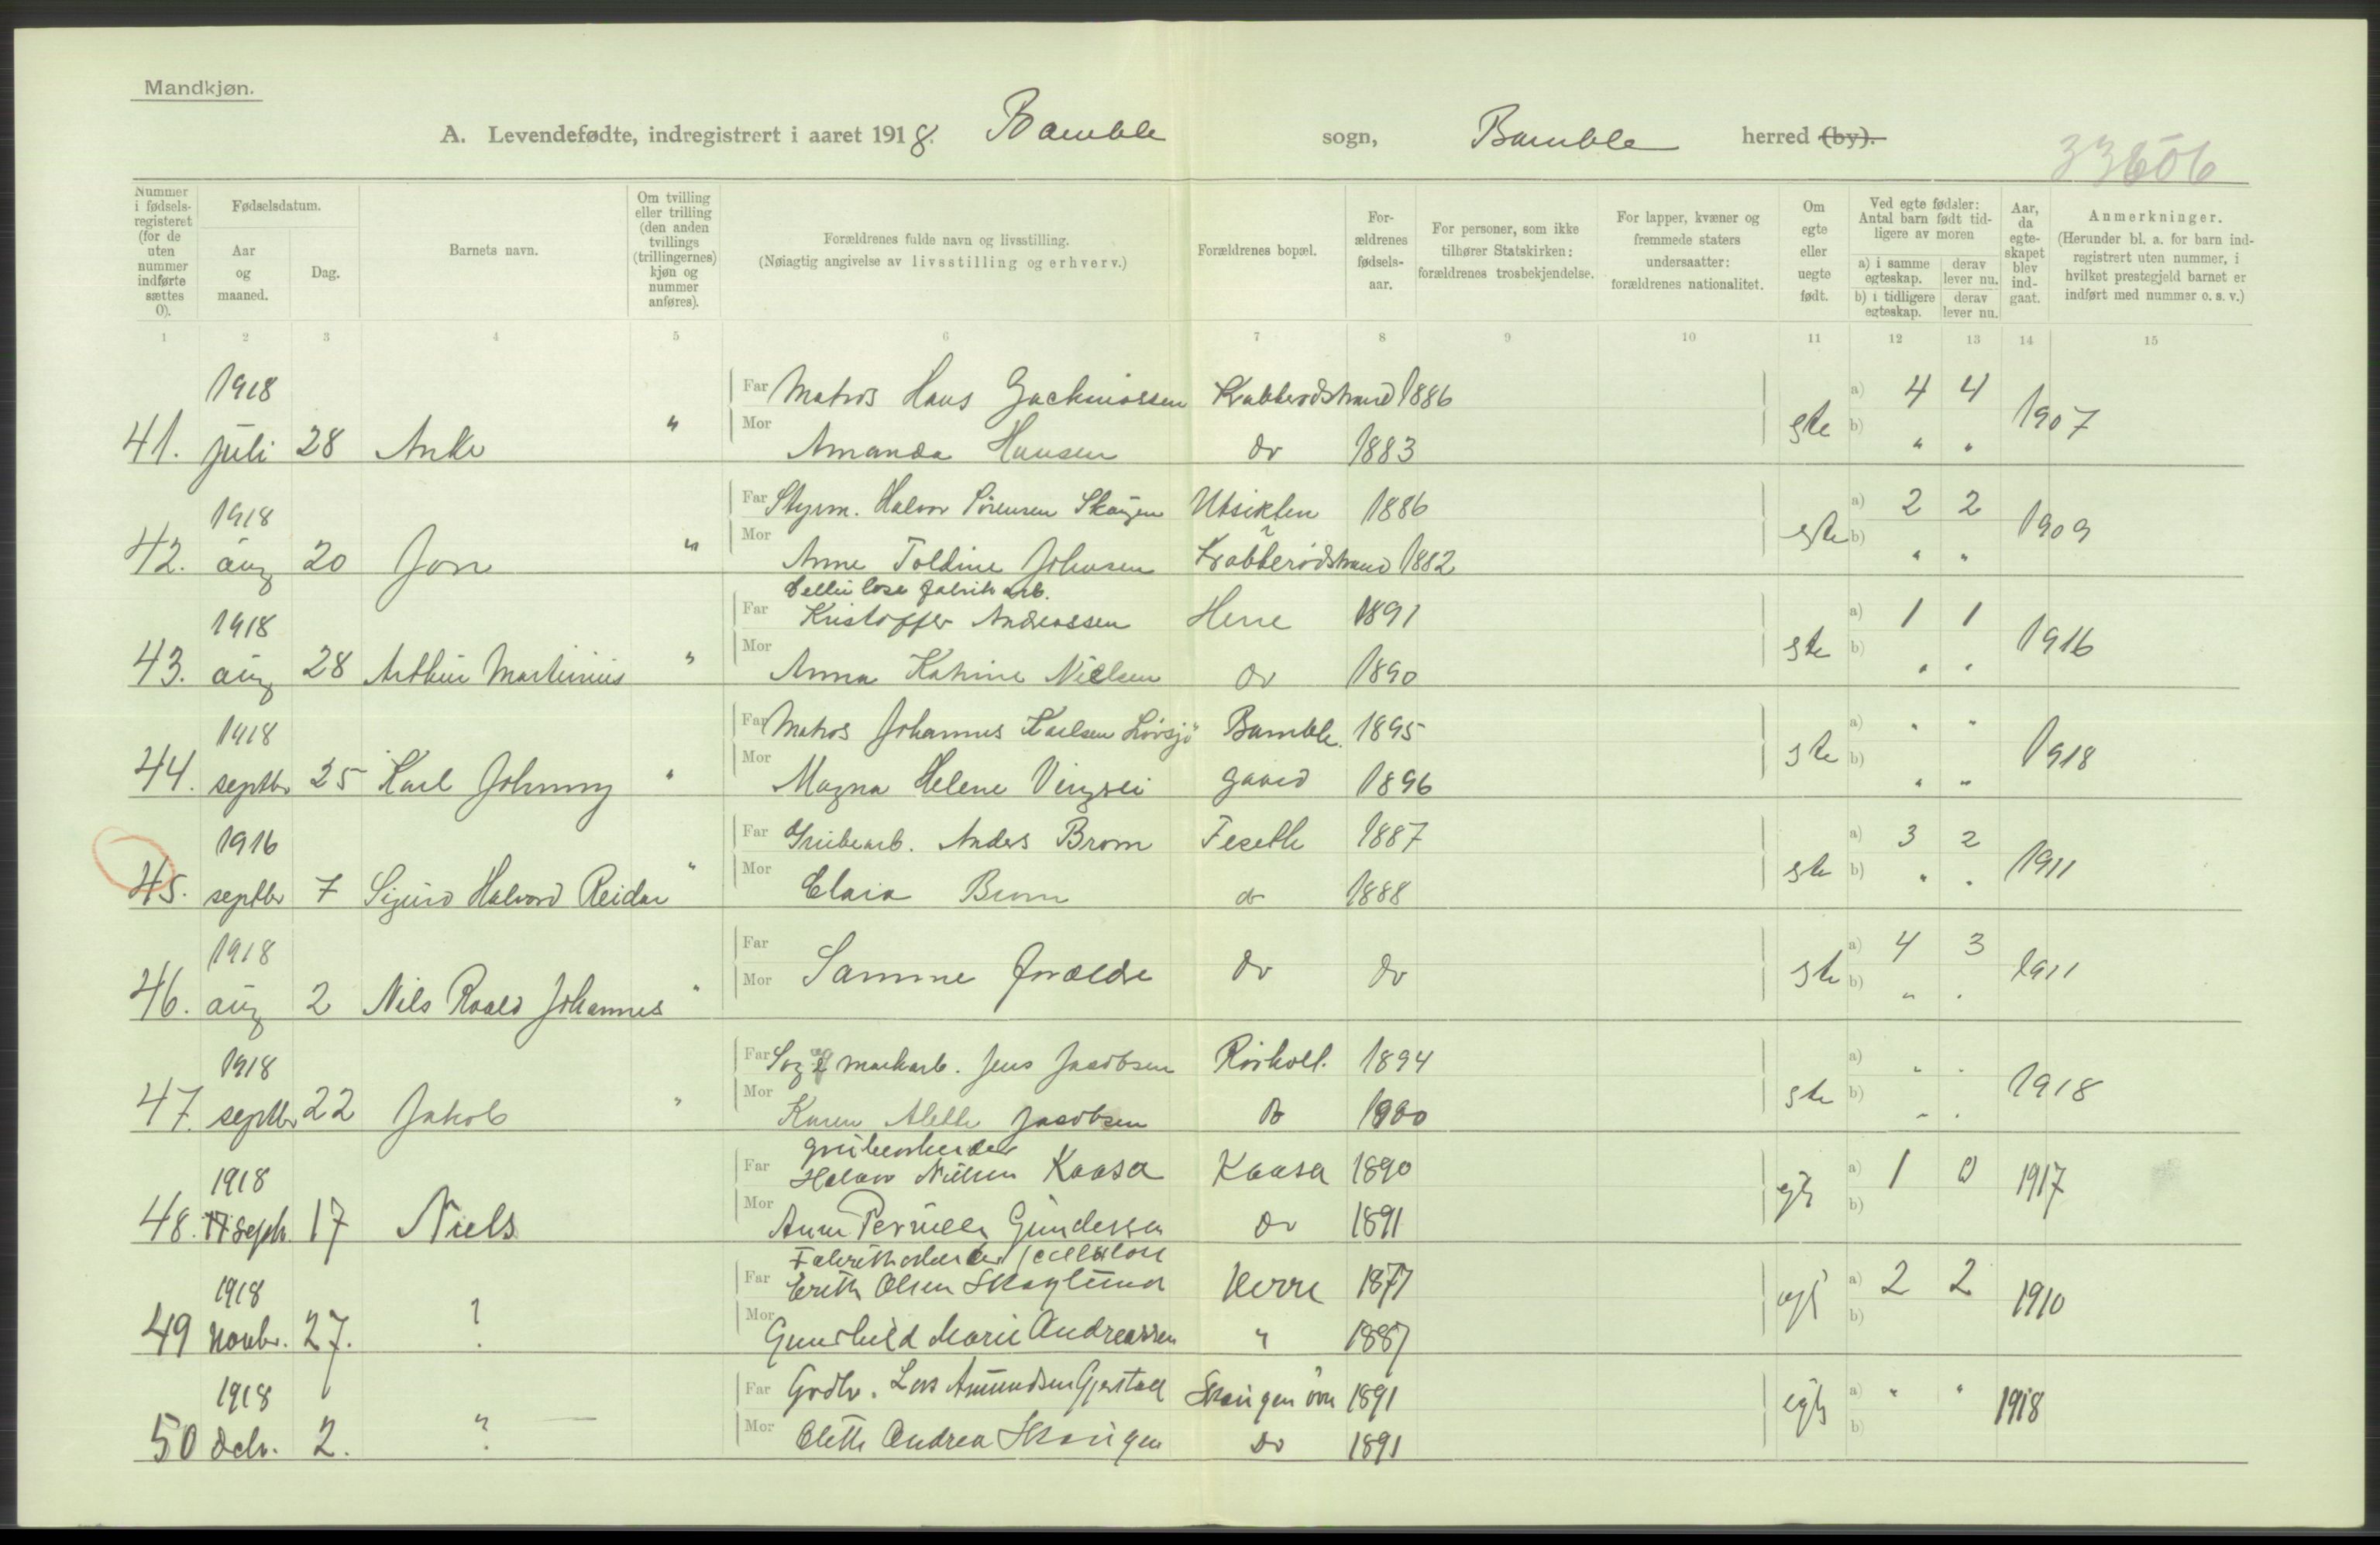 Mandkjøn.
A. Levendefødte, indregistrert i aaret 1918. Bamble sogn, Bamble herred (by).
33606
Nummer i fødsels-registeret (for de uten nummer indførte sættes 0).
Fødselsdatum.
Aar og maaned.
Dag.
Barnets navn.
Om tvilling eller trilling (den anden tvillings (trillingernes) kjøn og nummer anføres).
Forældrenes fulde navn og livsstilling.
(Nøiagtig angivelse av livsstilling og erhverv.)
Forældrenes bopæl.
For-ældrenes fødsels-aar.
For personer, som ikke tilhører Statskirken: forældrenes trosbekjendelse.
For lapper, kvæner og fremmede staters undersaatter: forældrenes nationalitet.
Om egte eller uegte født.
Ved egte fødsler: Antal barn født tid-ligere av moren
a) i samme egteskap. derav lever nu.
b) i tidligere egteskap. derav lever nu.
Aar, da egte-skapet blev ind-gaat.
Anmerkninger.
(Herunder bl. a. for barn ind-registrert uten nummer, i hvilket prestegjeld barnet er indført med nummer o. s. v.)
1 2 3 4 5 6 7 8 9 10 11 12 13 14 15
1918 Far Matros Hans Krabberødstrand 1886 a) 4 4
41. juli 28 " Mor Amanda Hansen do 1883 gte b) " " 1907
1918 Far Styrm. Halvor Sørensen Skaugen Utsikten 1886 a) 2 2
42. aug 20 Jon " Mor Anne Toldine Johnsen Krabberødstrand 1882 gte b) " " 1909
Cellulose fabrik arb.
1918 Far Kristoffer Andreassen Herre 1891 a) 1 1
43. aug 28 Arthur Martinius " Mor Anna Katrine Nielsen do 1890 gte b) " " 1916
1918 Far Matros Johannes Karlsen Lövsjö Bamble 1895 a) " "
44. septbr 25 Karl Johnny " Mor Magna Helene Vingrei gaard 1896 gte b) " " 1918
1916 Far Grubearb. Anders Brom Feseth 1887 a) 3 2
45. septbr 7 Sigurd Halvard Reidar " Mor Clara Brom do 1888 gte b) " " 1911
1918 Far a) 4 3
46. aug 2 Nils Roald Johannes " Mor Samme forældre do do gte b) " " 1911
1918 Far Sag og markarb. Jens Jacobsen Rørholt. 1894 a) " "
47. septbr 22 Jakob " Mor Karen Alette Jacobsen do 1900 gte b) " " 1918
Grubearbeider
1918 Far Halvor Nielsen Kaasa Kaasa 1890 a) 1 0
48. 17 septr. 17 Niels Mor Anne Pernille Gundersen do 1891 egte b) 1917
Fabrikarbeider (cellulose
1918 Far Erik Olsen Skoglund Herre 1877 a) 2 2
49 Novbr. 27. ? Mor Gunhild Marie Andreassen " 1887 egte b) 1910
1918 Far Grdbr. Lars Amundsen Gjerstad Skaugen övre 1891 a) " "
50 decbr. 2. ? Mor Olette Andrea Skaugen do 1891 egte b) 1918